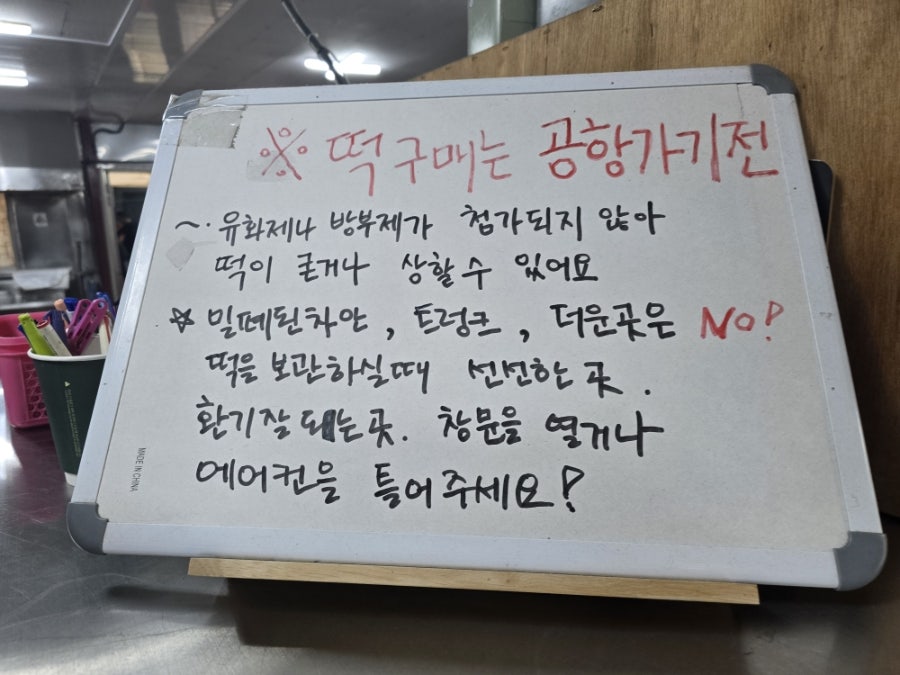 ※ 떡 구매는 공항가기전
~. 유화제나 방부제가 첨가되지 않아
떡이 굳거나 상할수 있어요
☆ 밀떼된차안, 트렁크, 더운곳은 NO!
떡을 보관하실때 선선한 곳.
환기잘 되는곳. 창문을 열거나
에어컨을 틀어주세요!
MADE IN CHINA